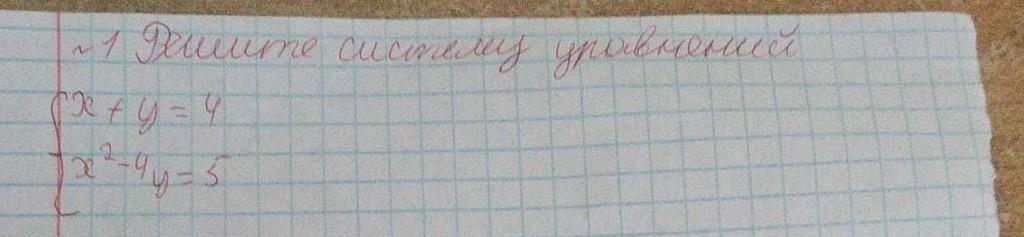 ~1 Решите систему уравнений
x + y = 4
x² - 4y = 5